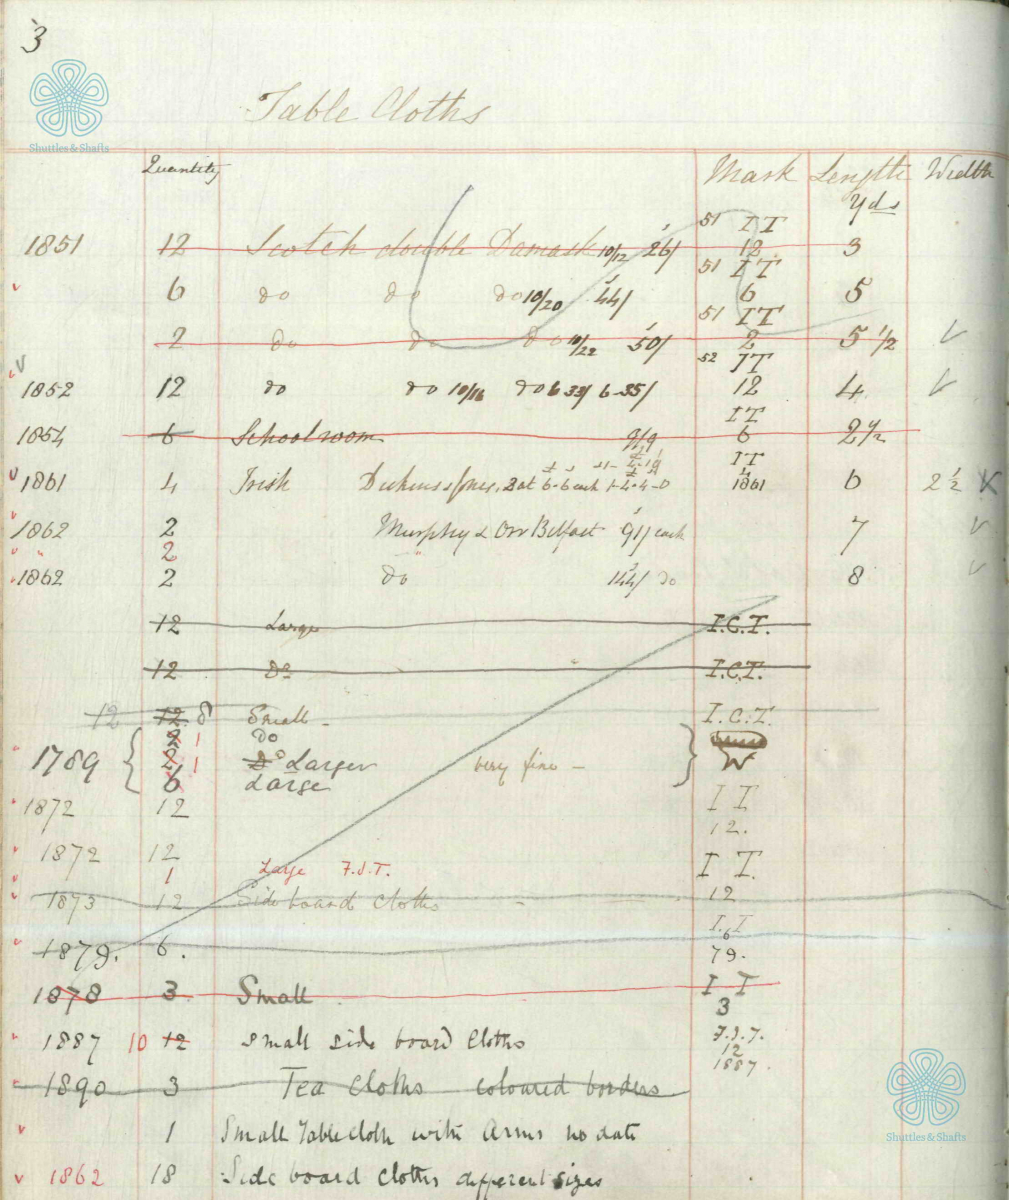 3
Shuttles & Shafts
Table Cloths
Quantity Mark Length Width
Yds
51 IT
1851 12 Scotch double Damask 10/12 26/ 12 3
51 IT
6 do do do 10/20 44/ 6 5
51 IT
2 do do do 10/22 50/ 2 5 1/2
52 IT
1852 12 do do 10/16 do 6 33/ 6-35/ 12 4
IT
1854 6 Schoolroom 9/9 6 2 1/2
IT
4
1861 4 Irish 2 at 6-6 each 1861 6 2 1/2
1862 2 Murphy & Orr Belfast 91/ each 7
" 2 "
1862 2 do 144/ do 8
12 Large I.C.T.
12 Do I.C.T.
12 12 8 Small - I.C.T.
2 1 do
1789 2 1 Do Larger very fine - W
6 Large
1872 12 I T
12.
1872 12 I T.
1 Large F.J.T.
1873 12 Side board cloths - 12
I T
6
1879. 6. 79.
1878 3 Small I T
3
1887 10 12 small side board Cloths F.J.T.
12
1887.
1890 3 Tea Cloths coloured borders
1 Small Table cloth with Arms no date
1862 18 Side board cloths different sizes
Shuttles & Shafts